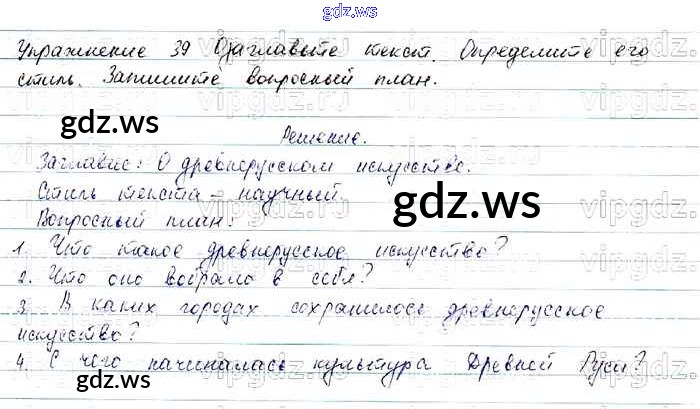 gdz.ws
Упражнение 39 Озаглавьте текст. Определите его
стиль. Запишите вопросный план.
gdz.ws
Решение.
Заглавие: О древнерусском искусстве.
Стиль текста – научный.
gdz.ws
Вопросный план:
1. Что такое древнерусское искусство?
2. Что оно вобрало в себя?
3. В каких городах сохранилось древнерусское
искусство?
4. С чего начиналась культура Древней Руси?
gdz.ws
gdz.ws